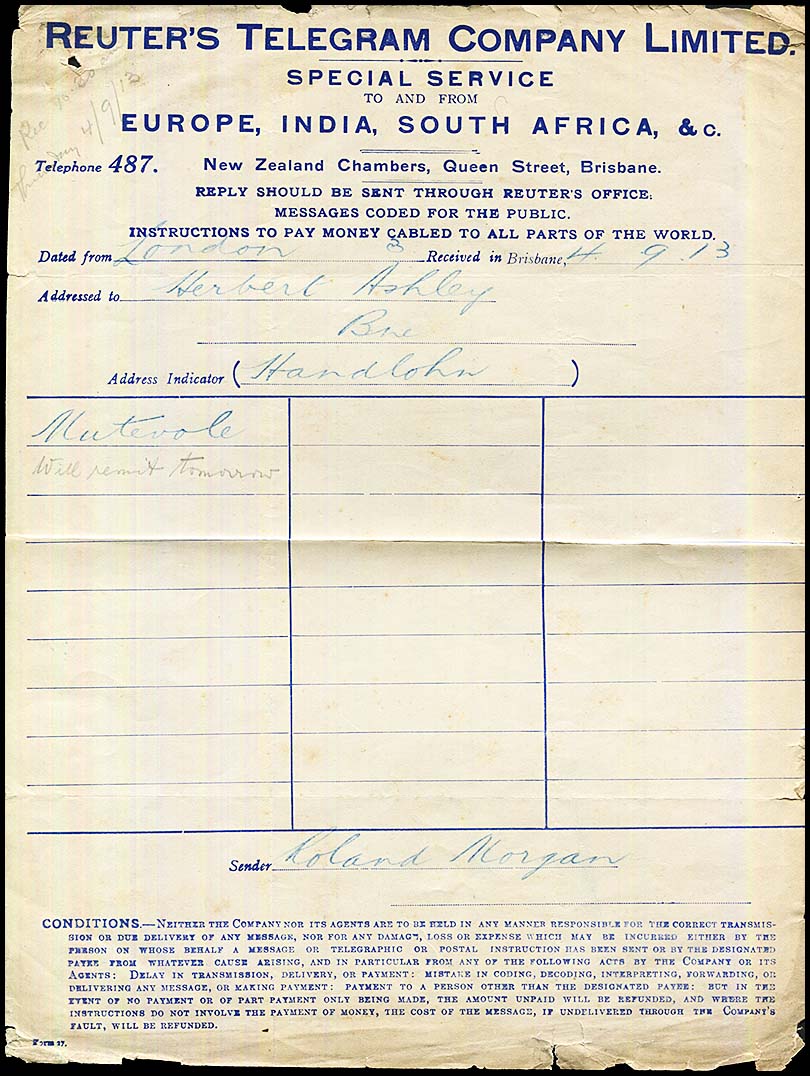 REUTER'S TELEGRAM COMPANY LIMITED.
SPECIAL SERVICE
TO AND FROM
EUROPE, INDIA, SOUTH AFRICA, & C.
Telephone 487. New Zealand Chambers, Queen Street, Brisbane.
REPLY SHOULD BE SENT THROUGH REUTER'S OFFICE.
MESSAGES CODED FOR THE PUBLIC.
INSTRUCTIONS TO PAY MONEY CABLED TO ALL PARTS OF THE WORLD.
Rec
Thursday 4/9/13
Dated from London 3 Received in Brisbane, 4. 9. 13
Addressed to Herbert Ashley
Bne
Address Indicator (Handlohn)
Mutevole
Will remit tomorrow
Sender Roland Morgan
CONDITIONS.—NEITHER THE COMPANY NOR ITS AGENTS ARE TO BE HELD IN ANY MANNER RESPONSIBLE FOR THE CORRECT TRANSMIS-
SION OR DUE DELIVERY OF ANY MESSAGE, NOR FOR ANY DAMAGE, LOSS OR EXPENSE WHICH MAY BE INCURRED EITHER BY THE
PERSON ON WHOSE BEHALF A MESSAGE OR TELEGRAPHIC OR POSTAL INSTRUCTION HAS BEEN SENT OR BY THE DESIGNATED
PAYEE FROM WHATEVER CAUSE ARISING, AND IN PARTICULAR FROM ANY OF THE FOLLOWING ACTS BY THE COMPANY OR ITS
AGENTS: DELAY IN TRANSMISSION, DELIVERY, OR PAYMENT: MISTAKE IN CODING, DECODING, INTERPRETING, FORWARDING, OR
DELIVERING ANY MESSAGE, OR MAKING PAYMENT: PAYMENT TO A PERSON OTHER THAN THE DESIGNATED PAYEE: BUT IN THE
EVENT OF NO PAYMENT OR OF PART PAYMENT ONLY BEING MADE, THE AMOUNT UNPAID WILL BE REFUNDED, AND WHERE THE
INSTRUCTIONS DO NOT INVOLVE THE PAYMENT OF MONEY, THE COST OF THE MESSAGE, IF UNDELIVERED THROUGH THE COMPANY'S
FAULT, WILL BE REFUNDED.
Form 27.